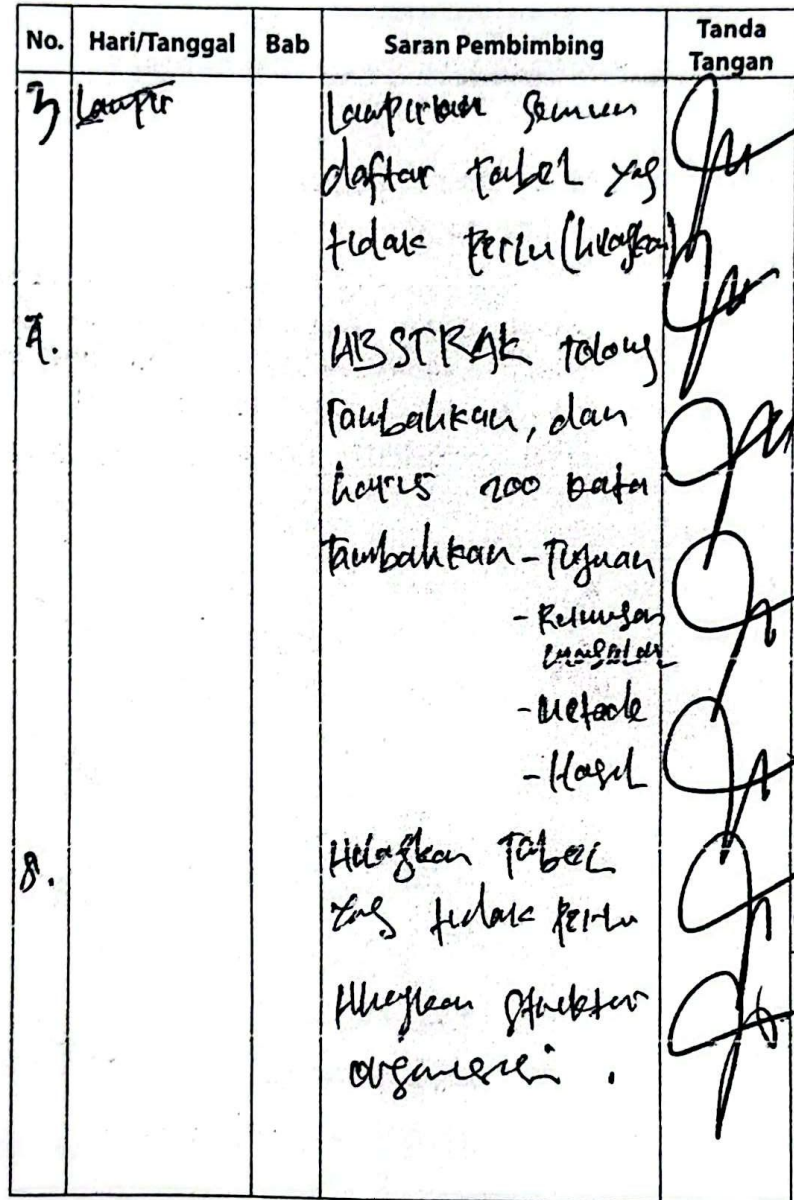 No. Hari/Tanggal Bab Saran Pembimbing Tanda Tangan
3 Lampir Lampirkan semua
daftar tabel yag
tidak perlu (hilagkan)
4. ABSTRAK tolong
tambahkan, dan
harus 200 kata
tambahkan - Tujuan
- Rumusan
masalah
- Metode
- Hasil
8. Hilagkan Tabel
yag tidak perlu
Hilagkan struktur
organisasi .